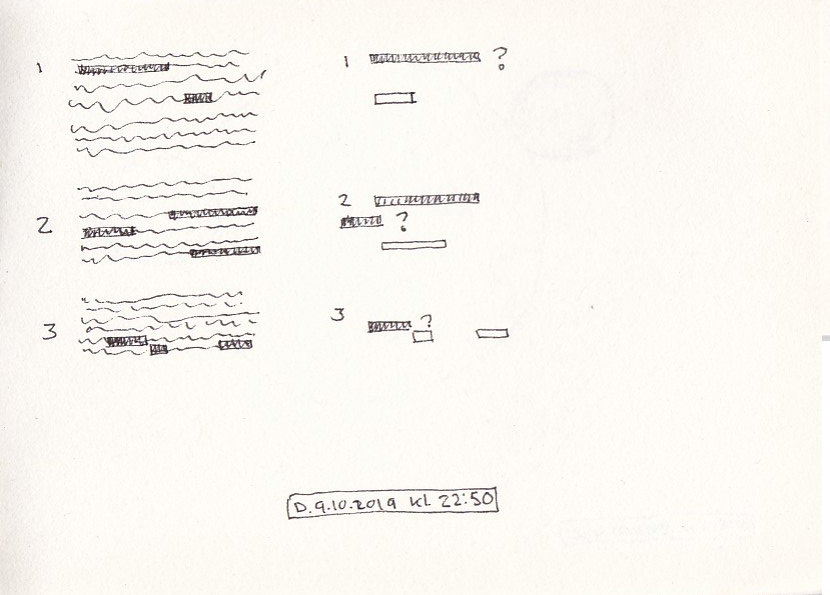 1
1 ?
2
2
?
3
3
?
D.9.10.2019 Kl 22:50